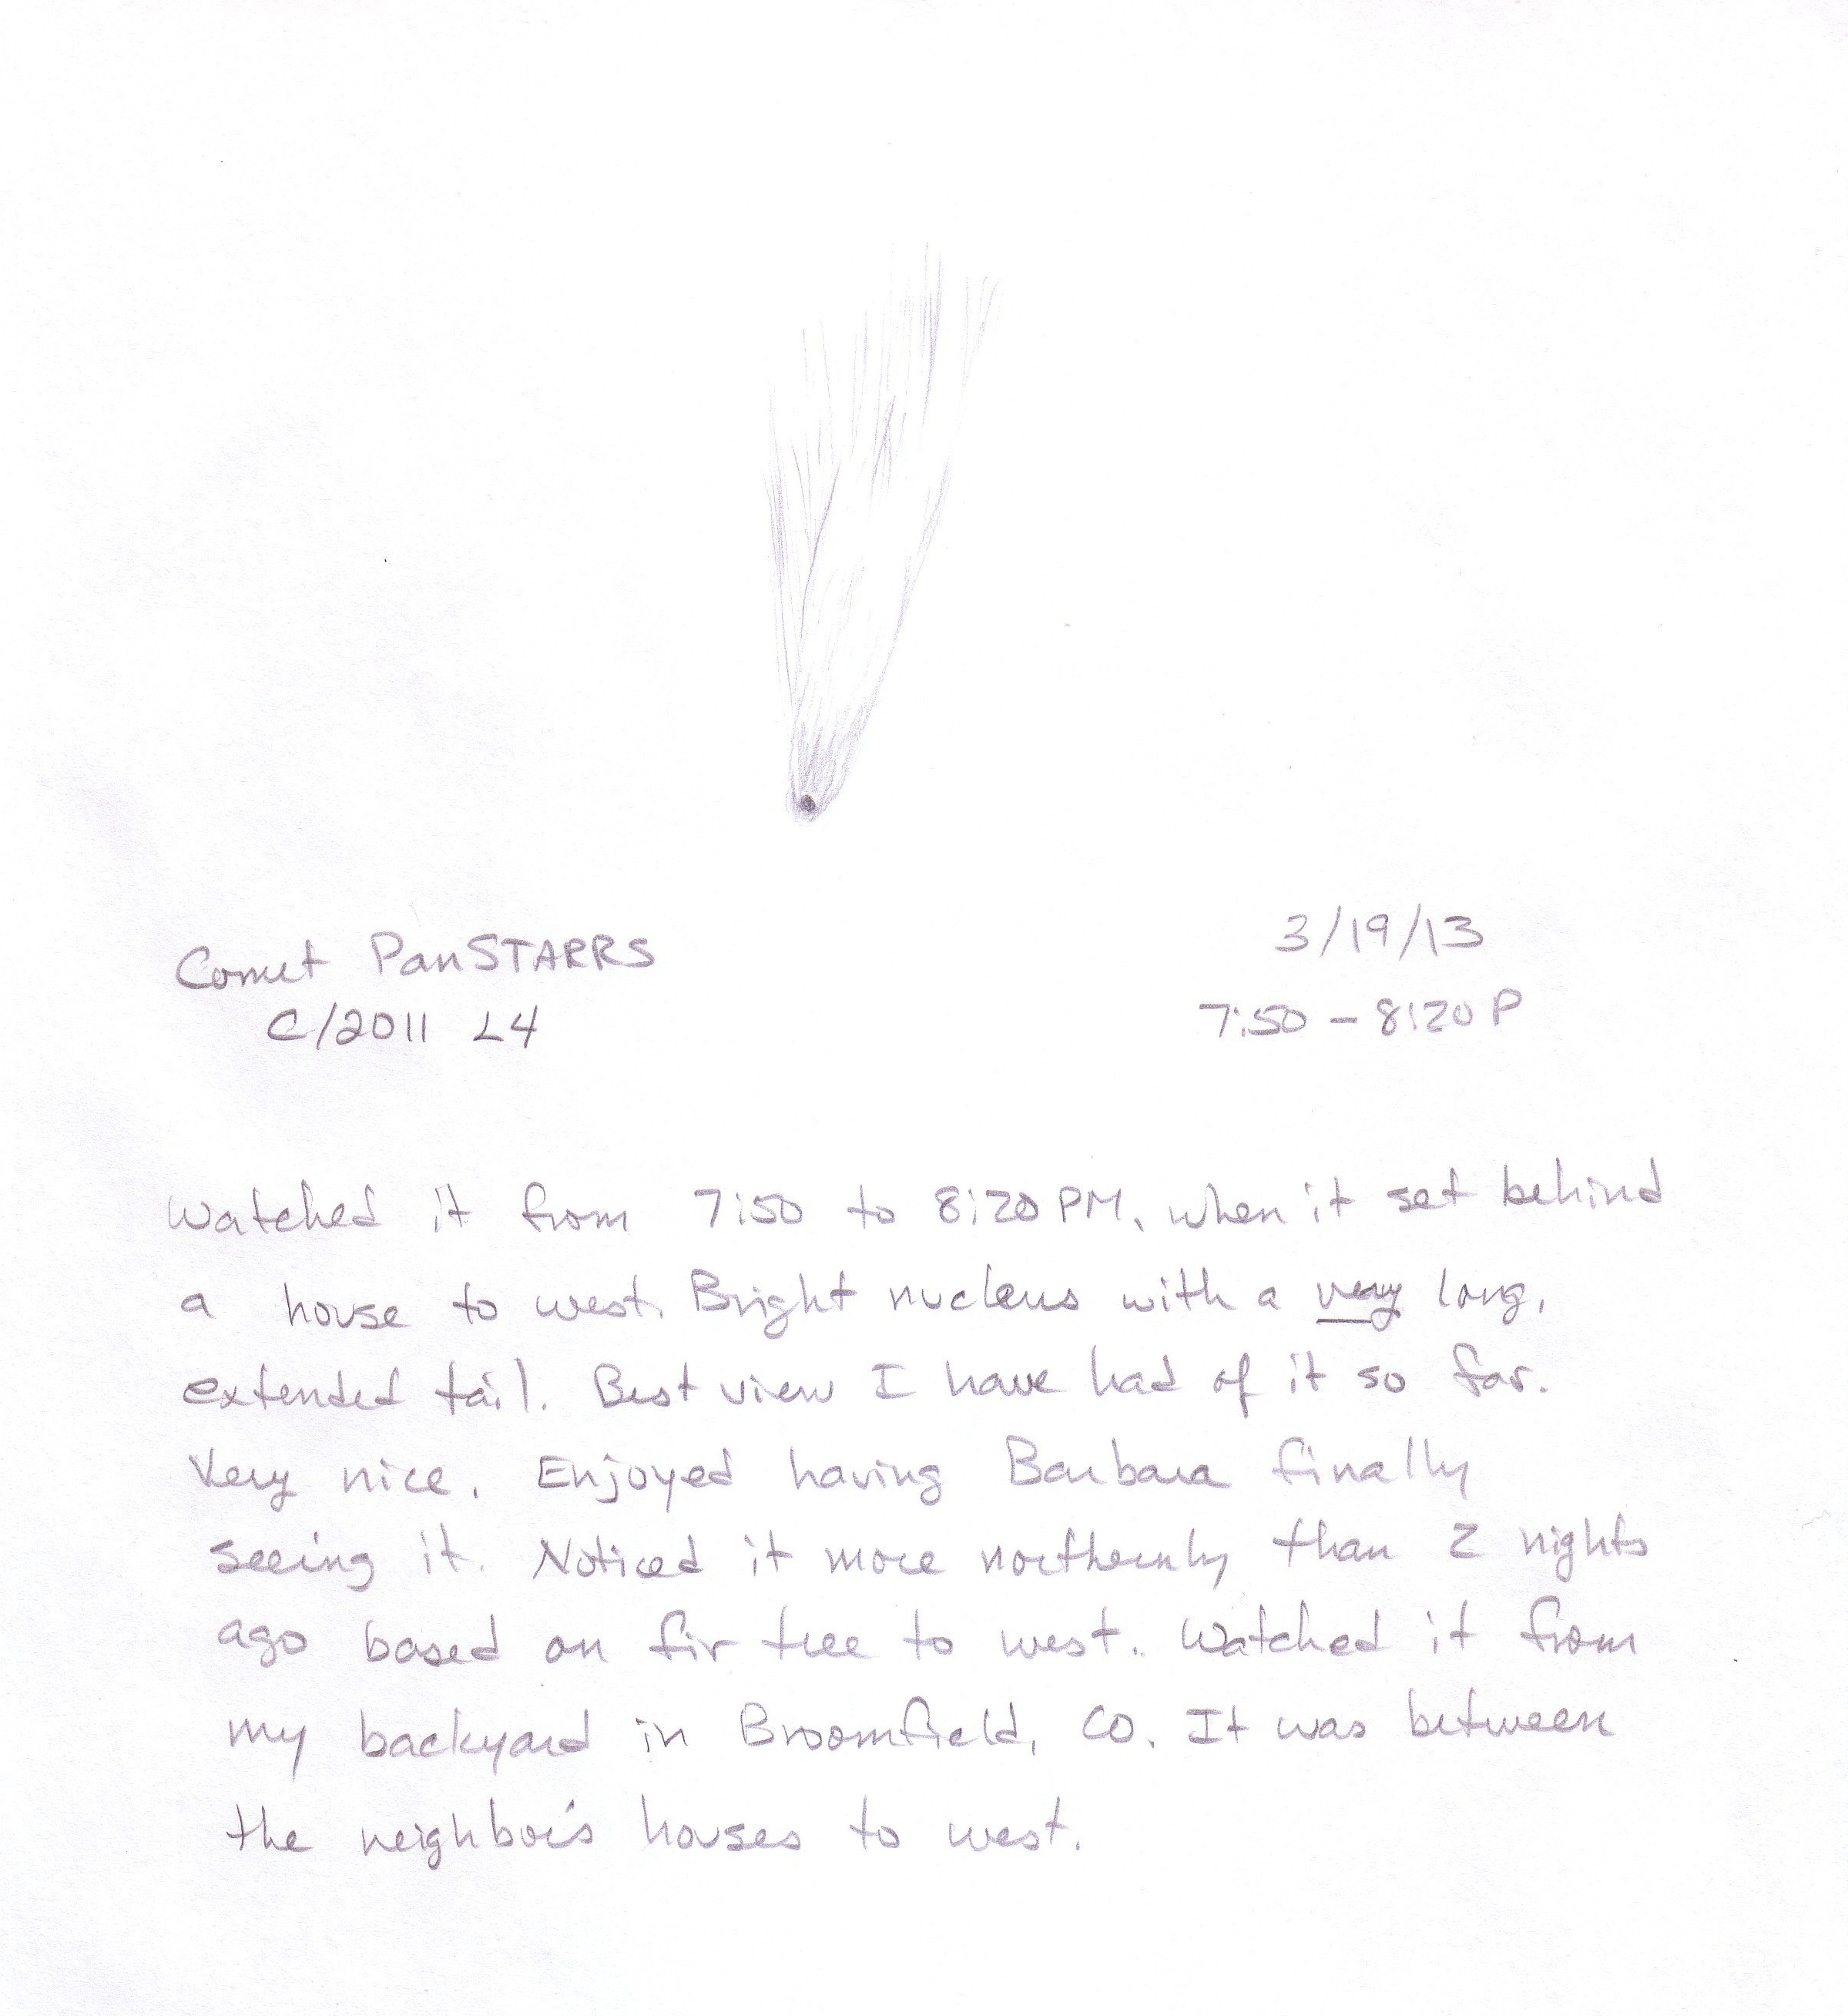 Comet PanSTARRS
C/2011 L4
3/19/13
7:50 - 8:20 P
Watched it from 7:50 to 8:20 PM, when it set behind
a house to west. Bright nucleus with a very long,
extended tail. Best view I have had of it so far.
Very nice. Enjoyed having Barbara finally
seeing it. Noticed it more northernly than 2 nights
ago based on fir tree to west. Watched it from
my backyard in Broomfield, CO. It was between
the neighbor's houses to west.